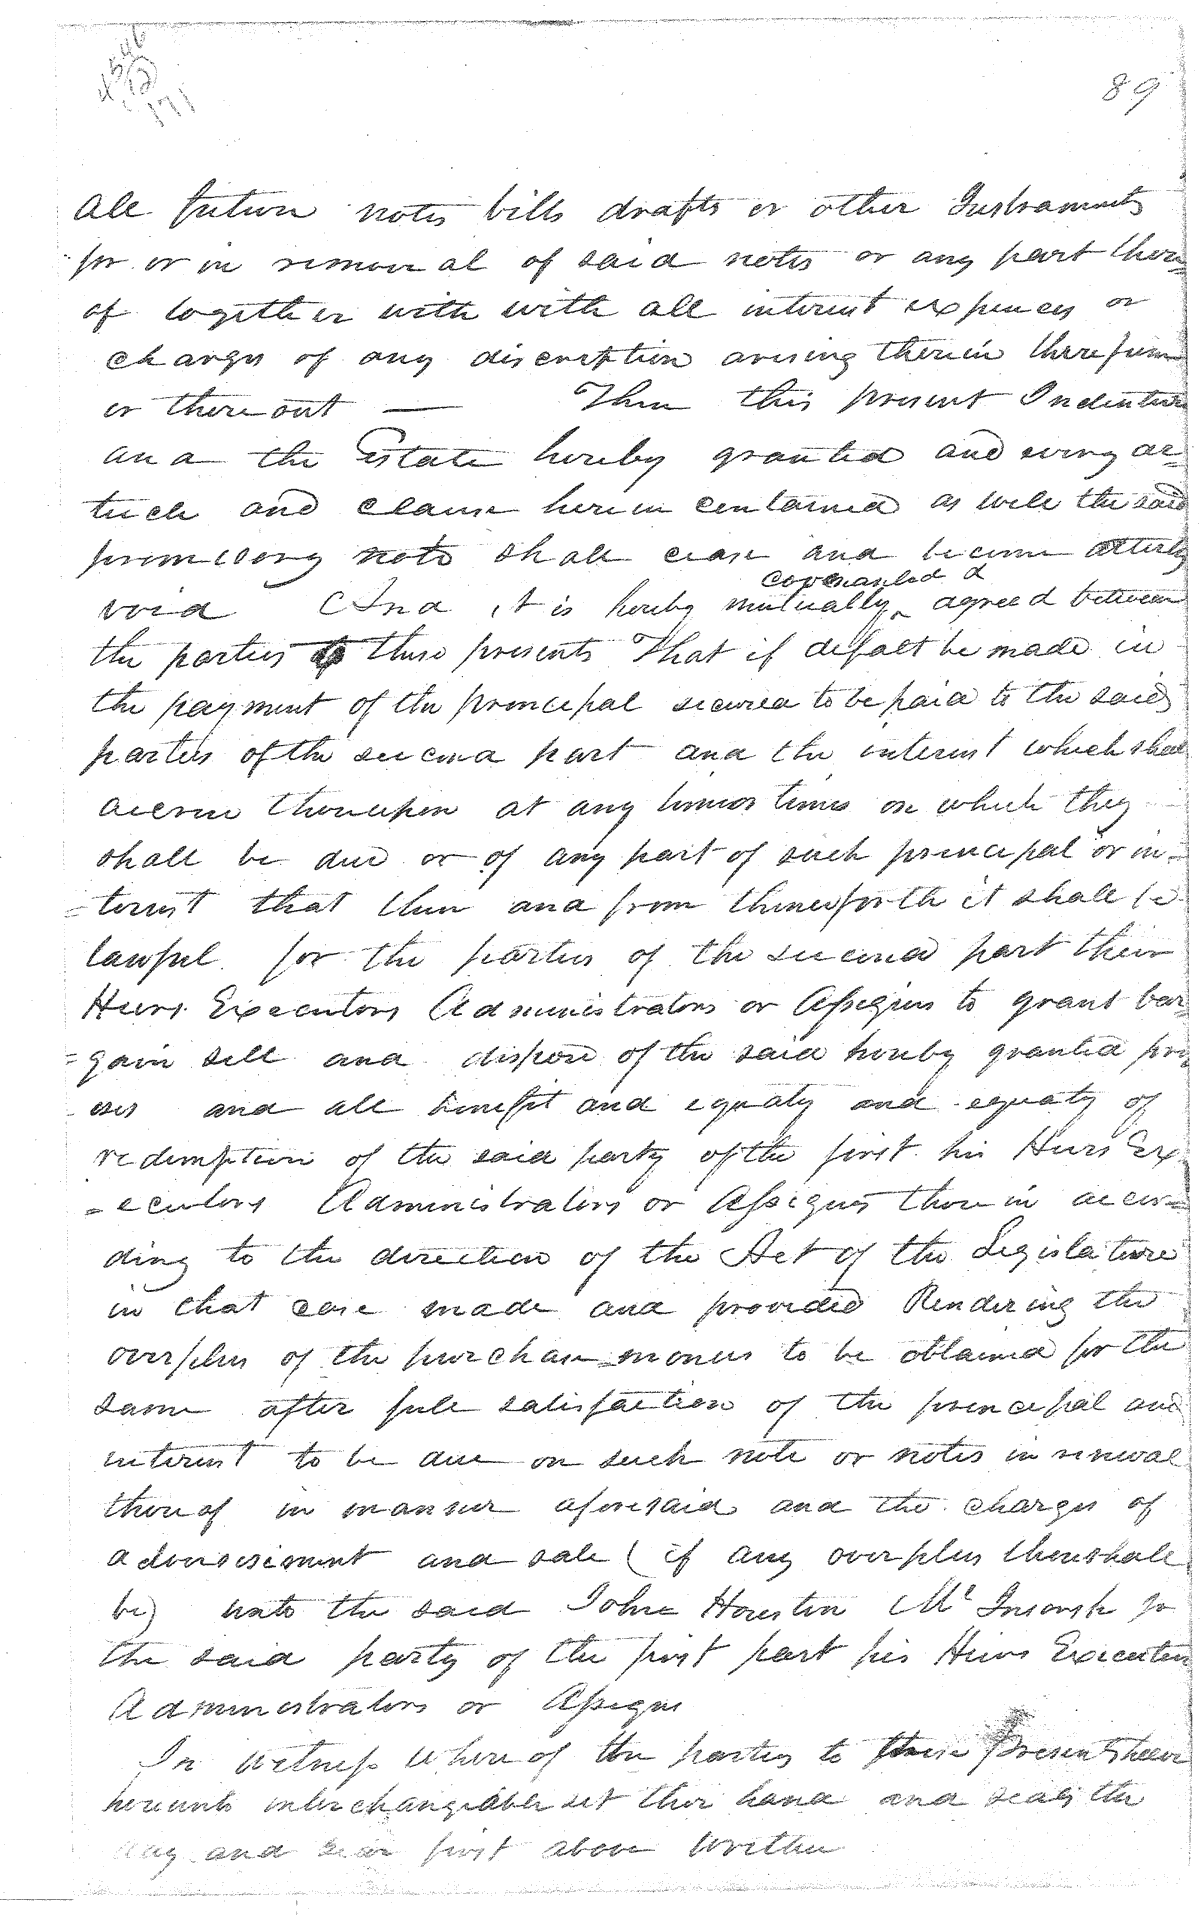 89
All future notes bills drafts or other Instruments
for or in removal of said notes or any part there
of together with with all interest expences or
charges of any discription arising therein therefrom
or there out — Then this present Indenture
and the Estate hereby granted and every ar-
ticle and clause herein contained as well the said
promissory note shall cease and become utterly
covenanted &
void And it is hereby mutually ‸ agreed between
the parties to these presents That if defalt be made in
the payment of the principal secured to be paid to the said
parties of the second part and the interest which shall
accrue thereupon at any time or times on which they
shall be due or of any part of such principal or in-
-terest that then and from thenceforth it shall be
lawful for the parties of the second part their
Heirs Executors Administrators or Assigns to grant bar
-gain sell and dispose of the said hereby granted prem
-eses and all benefit and equaty and equaty of
redemption of the said party of the first his Heirs Ex-
-ecutors Administrators or Assigns therein accor-
ding to the direction of the Act of the Legislature
in that case made and provided Rendering the
overplus of the purchase moneis to be obtained for the
same after full satisfaction of the principal and
interest to be due on such note or notes in renewal
thereof in manner aforesaid and the charges of
and sale (if any overplus there shall
be) unto the said John Houston Mc Intosh Jr
the said party of the first part his Heirs Executors
Administrators or Assigns
In witness Whereof the parties to these Presents have
hereunto interchangeable set their hand and seals the
day and year first above Written